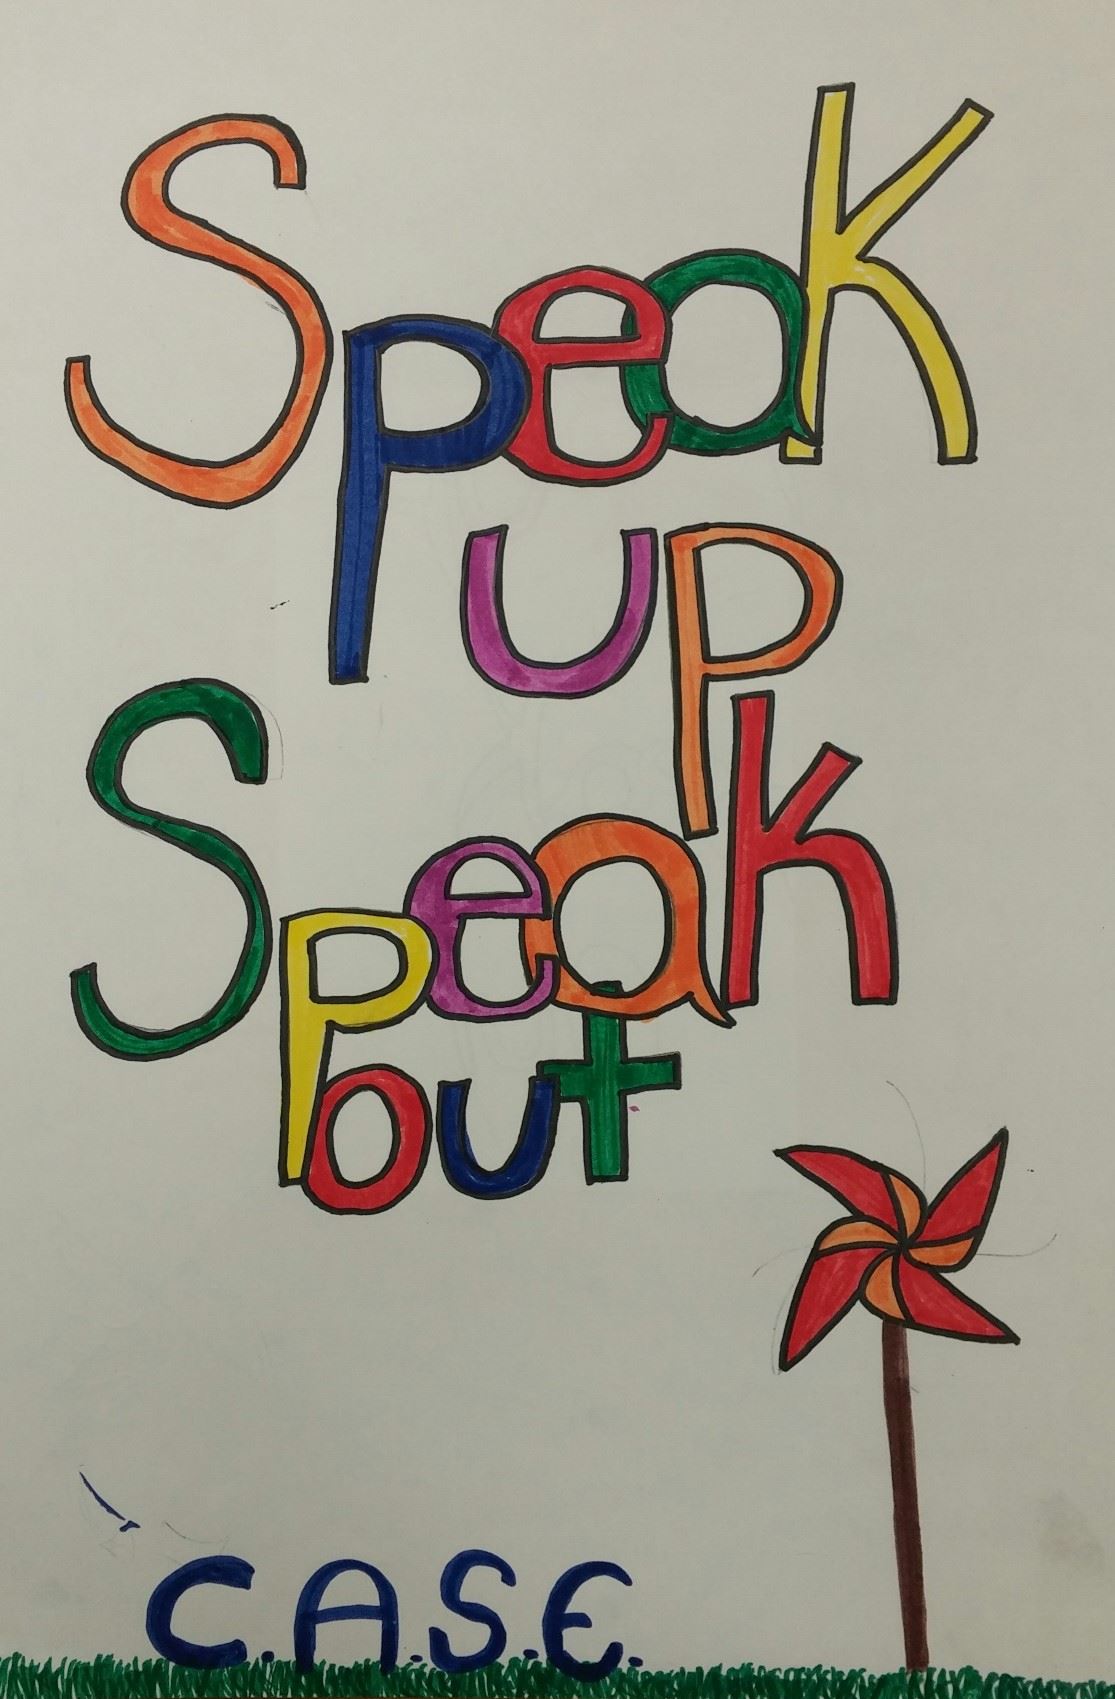 Speak
up
Speak
out
C.A.S.E.